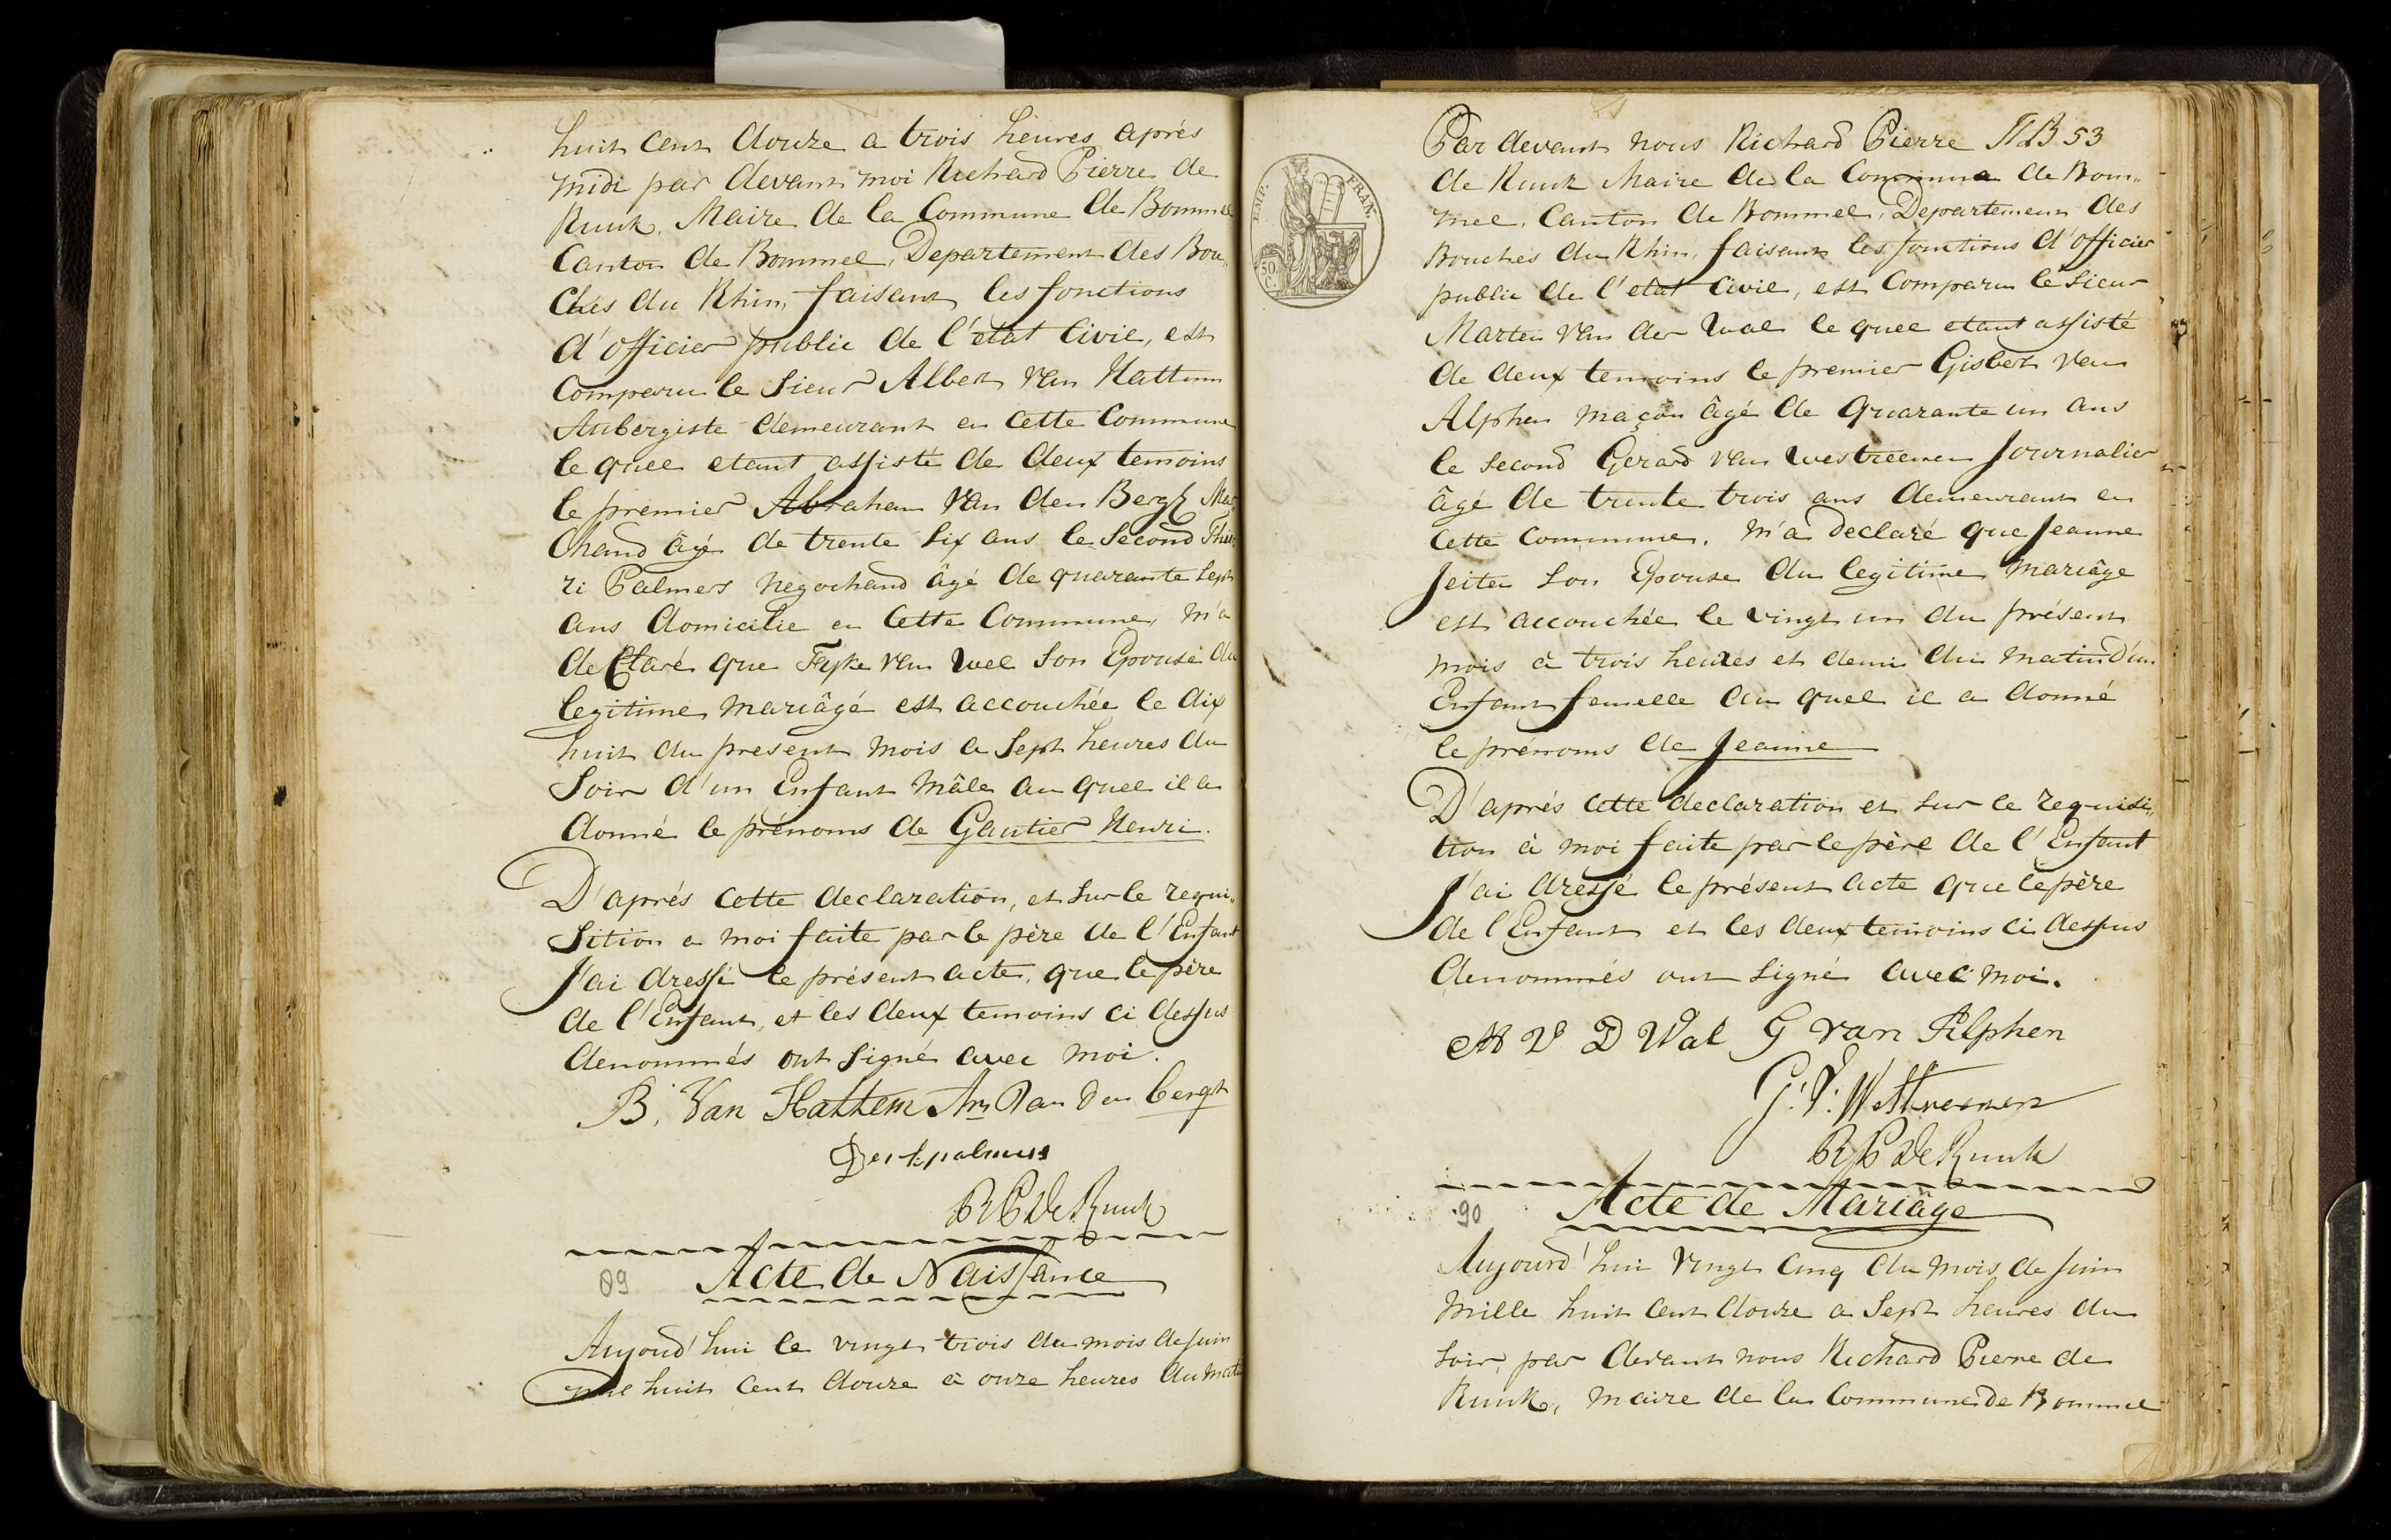 huit cent douze a trois heures aprés
midi par devant moi Richard Pierre de
Runk, Maire de la Commune de Bommel
Canton de Bommel, Departement des Bou„
ches du Rhin, faisant les fonctions
d'officier public de l'etat Civil, est
comparu le Sieur Albert van Hattum
Aubergiste demeurant en cette Commune
le quel etant assisté de deux temoins
le premier Abraham van den Bergh Mar„
chand âgé de trente six ans le Second Thier„
ri Palmers negochand âgé de quarante sept
ans domicilié en Cette Commune, m'a
declaré que Fyke van Wel son Epouse du
legitime mariâgé est accouchée le dix
huit du present mois a Sept heures du
Soir d'un Enfant mâle au quel il a
donné le prénoms de Gautier Henri.
D'aprés cette declaration, et sur le requi„
sition a moi faite par le père de l'Enfant
J'ai dressé le présent acte, que le père
de l'Enfant, et les deux temoins ci dessus
denommés ont signé avec moi.
B. Van Hattem Am Van den bergh
Derk palmers
R P De Runk
89 Acte de Naissance
Aujourd'hui le vingt trois du mois de Juin
mil huit cent douze à onze heures du matin
EMP. FRAN.
50. C.
Par devant nous Richard Pierre NB 53
de Runk Maire de la Commune de Bom„
mel, Canton de Bommel, Departement des
Bouches du Rhin, faisant les fonctions d'officier
public de l'etat civil, est comparu le Sieur
Marten van der Wal le quel etant assisté
de deux temoins le premier Gisbert van
Alphen maçon âgé de quarante un ans
le second Gerard van Westreenen Journalier
âgé de trente trois ans demeurant en
cette commune, m'a declaré que Jeanne
Jeiter son Epouse du legitime mariâge
est accouchée le vingt un du présent
mois à trois heures et demi du matin d'un
Enfant femelle au quel il a donné
le prénoms de Jeanne
D'aprés cette declaration et sur le requisi„
tion à moi faite par le père de l'Enfant
J'ai dressé le présent acte que le père
de l'Enfant et les deux temoins ci dessus
denommés ont signé avec moi.
M V D Wal G van Alphen
G: V: Westreenen
R P De Runk
90 Acte de Mariâge
Aujourd'hui vingt cinq du mois de Juin
mille huit cent douze a Sept heures du
soir, par devant nous Richard Pierre de
Runk, maire de la Commune de Bommel